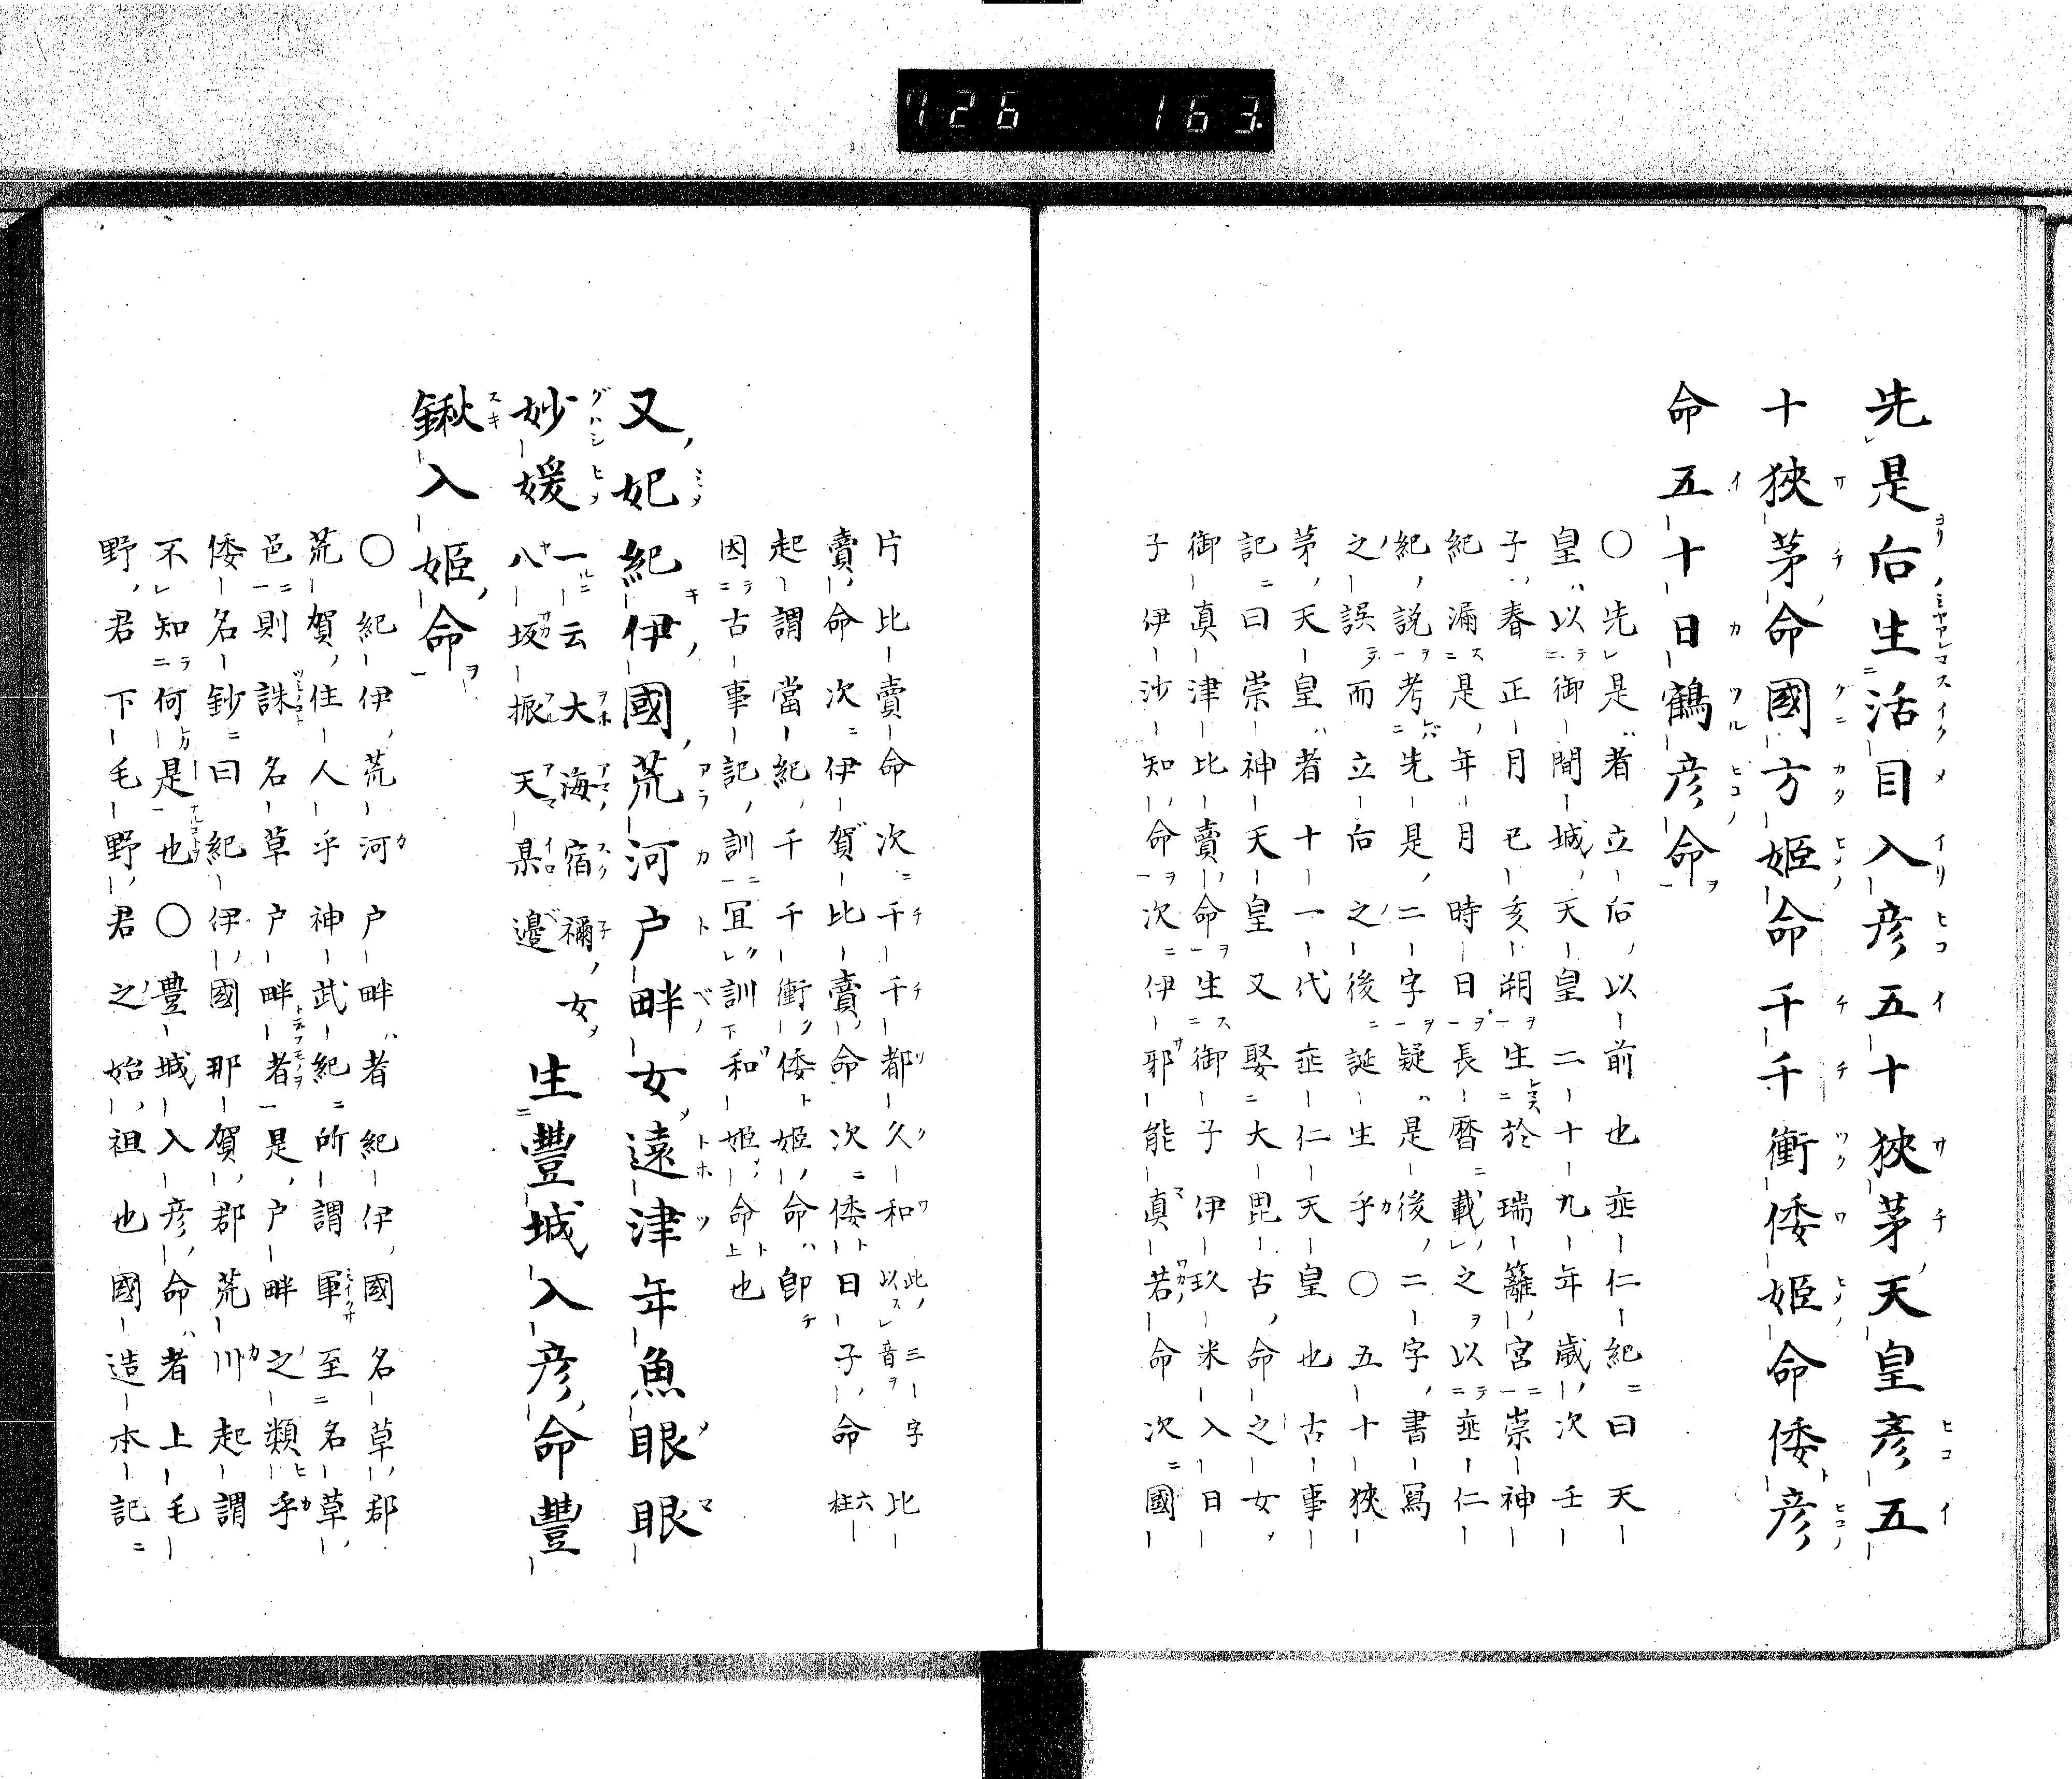 726 163
先是后生活目入彦五十狹茅天皇彥五
十狹茅命國方姬命千千衝倭姬命倭彦
命五十日鶴彦命
〇先是者立后以前也垂仁紀曰天
皇以御間城天皇二十九年歳次壬
子春正月己亥朔生於瑞籬宮崇神
紀漏是年月時日長曆載之以垂仁
紀說考先是二字疑是後二字書寫
之誤而立后之後誕生乎〇五十狹
茅天皇者十一代垂仁天皇也古事
記曰崇神天皇又娶大毘古命之女
御真津比賣命生御子伊玖米入日
子伊沙知命次伊邪能真若命次國
片比賣命次千千都久和此三字以音比
賣命次伊賀比賣命次倭日子命六柱
起謂當紀千千衝倭姬命即
因古事記訓宜訓和姬命也
又妃紀伊國荒河戸畔女遠津年魚眼眼
妙媛一云大海宿禰女八坂振天某邊生豐城入彦命豐
鍬入姬命
〇紀伊荒河戸畔者紀伊國名草郡
荒賀住人乎神武紀所謂軍至名草
邑則誅名草戸畔者是戸畔之類乎
倭名鈔曰紀伊國那賀郡荒川起謂
不知何是也〇豊城入彦命者上毛
野君下毛野君之始祖也國造本記